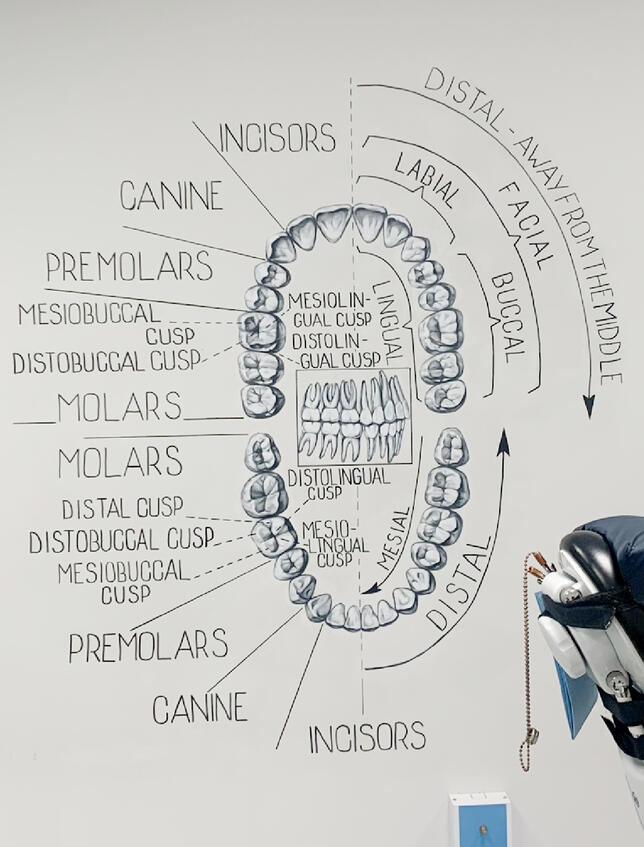 INCISORS
CANINE
PREMOLARS
MESIOBUCCAL
CUSP
DISTOBUCCAL CUSP
MOLARS
MESIOLIN-
GUAL CUSP
DISTOLIN-
GUAL CUSP
LINGUAL
LABIAL
FACIAL
BUCCAL
DISTAL-AWAY FROM THE MIDDLE
MOLARS
DISTAL CUSP
DISTOBUCCAL CUSP
MESIOBUCCAL
CUSP
PREMOLARS
CANINE
INCISORS
DISTOLINGUAL
CUSP
MESIO-
LINGUAL
CUSP
MESIAL
DISTAL